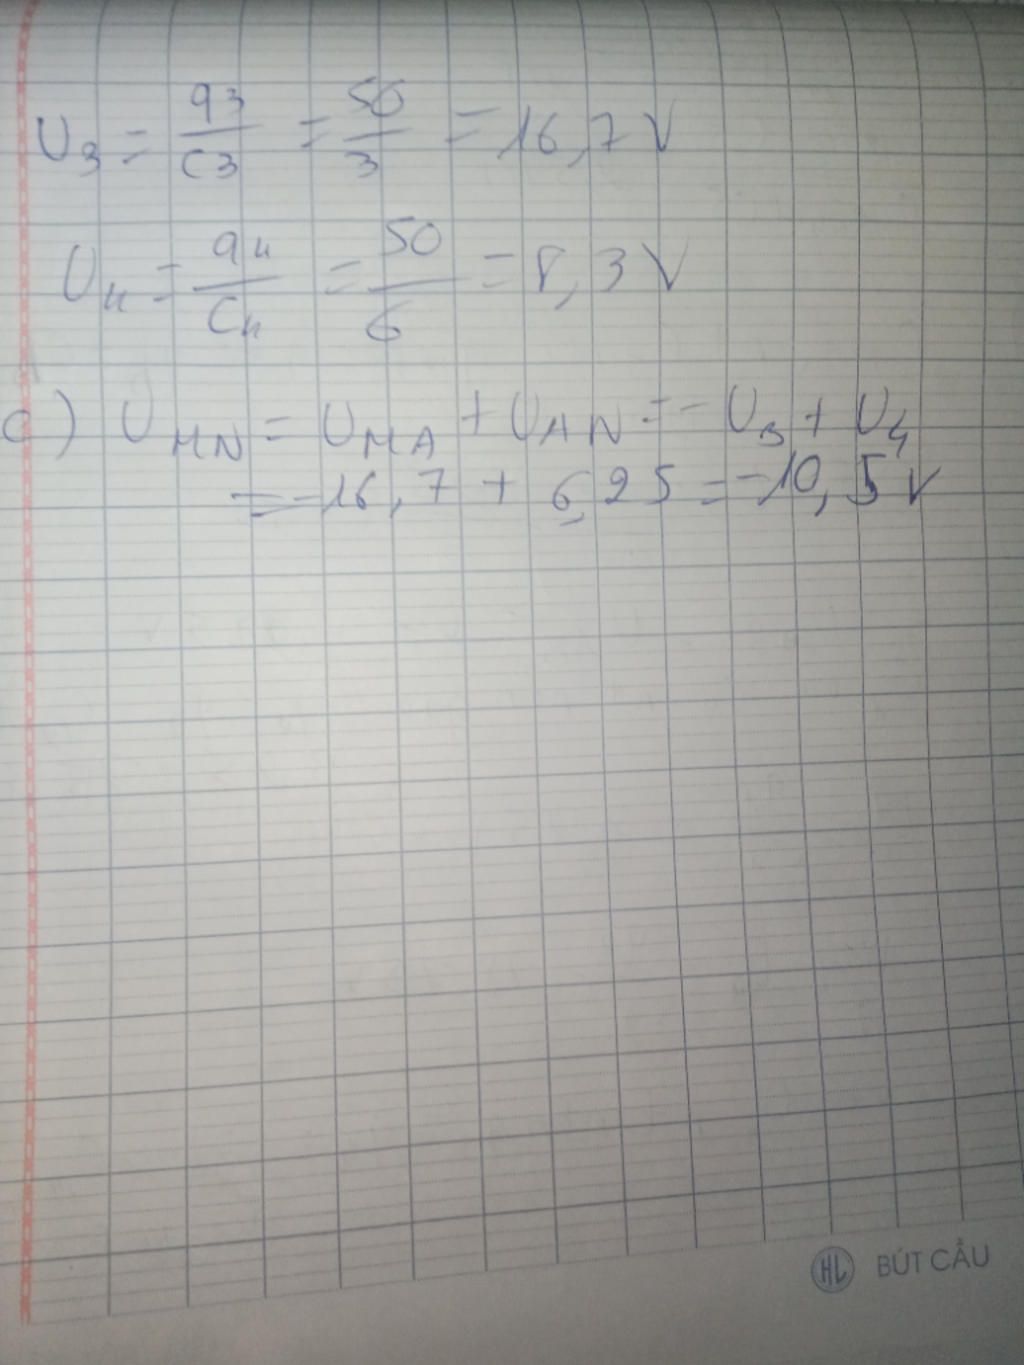 U3 = q3/C3 = 50/3 = 16,7 V
U4 = q4/C4 = 50/6 = 8,3 V
c) UMN = UMA + UAN = - U3 + U4
= -16,7 + 6,25 = -10,5 V
HL BÚT CẦU